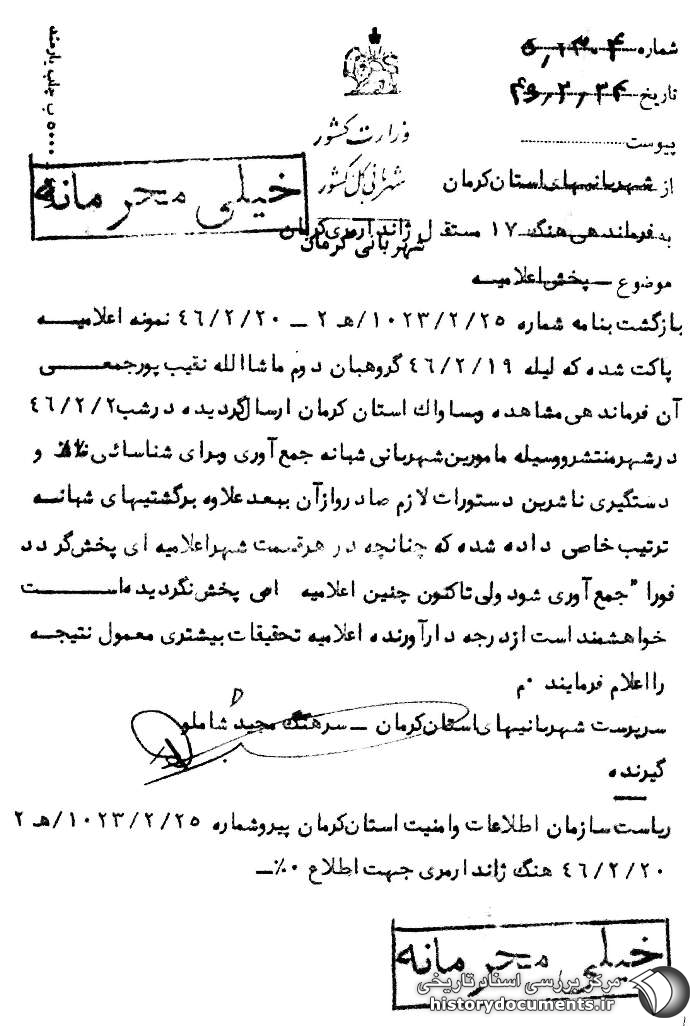 شماره ۵٫۱۳۰۴
تاریخ ۴۶٫۲٫۲۴
پیوست
وزارت کشور
شهربانی کل کشور
شهربانی کرمان
خیلی محرمانه
۵۰۰۰ ب چاپ
از شهربانیهای استان کرمان
به فرماندهی هنگ ۱۷ مستقل ژاندارمری کرمان
موضوع پخش اعلامیه
بازگشت بنامه شماره ۱۰۲۳/۲/۲۵/هـ ۲ ــ ۴۶/۲/۲۰ نمونه اعلامیه
پاکت شده که لیله ۴۶/۲/۱۹ گروهبان دوم ماشاالله نقیب پور جمعی
آن فرماندهی مشاهده وبساواك استان کرمان ارسال گردیده درشب ۴۶/۲/۲
درشهر منتشر ووسیله مامورین شهربانی شبانه جمع آوری وبرای شناسائی و
دستگیری ناشرین دستورات لازم صادر واز آن ببعد علاوه برگشتیهای شبانه
ترتیب خاصی داده شده که چنانچه در هرقسمت شهر اعلامیه ای پخش گردد
فورا" جمع آوری شود ولی تاکنون چنین اعلامیه ای پخش نگردیده است
خواهشمند است از درجه دار آورنده اعلامیه تحقیقات بیشتری معمول نتیجه
را اعلام فرمایند ۰م
سرپرست شهربانیهای استان کرمان ــ سرهنگ مجید شاملو
گیرنده
ریاست سازمان اطلاعات وامنیت استان کرمان پیرو شماره ۱۰۲۳/۲/۲۵/هـ ۲
۴۶/۲/۲۰ هنگ ژاندارمری جهت اطلاع ۰٪ــ
خیلی محرمانه
مرکز بررسی اسناد تاریخی
historydocuments.ir